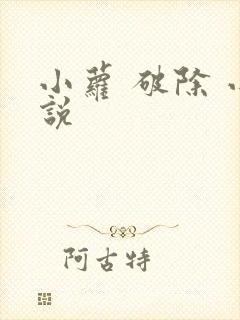 小蘿 破除
說
阿古特